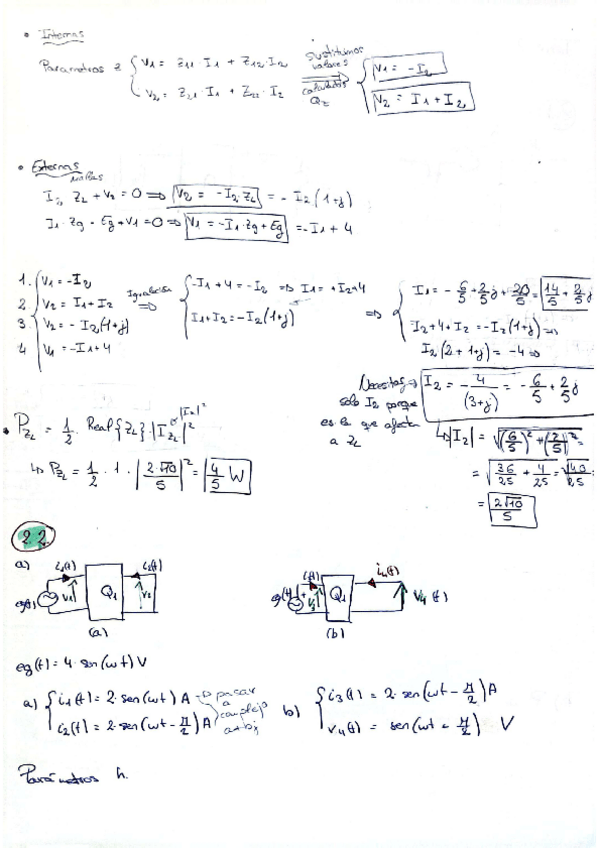 • Internas
Parámetros z { V1 = Z11·I1 + Z12·I2
V2 = Z21·I1 + Z22·I2
sustituimos valores calculados Qz ⟹
{ V1 = -I2
V2 = I1 + I2
• Externas
mallas
I2 ZL + V2 = 0 ⟹ V2 = -I2·ZL = -I2(1+j)
I1·Zg - Eg + V1 = 0 ⟹ V1 = -I1·Zg + Eg = -I1 + 4
1. V1 = -I2
2 V2 = I1+I2
3. V2 = -I2(1+j)
4 V1 = -I1+4
Igualación ⟹
{ -I1+4 = -I2 ⟹ I1 = +I2+4
I1+I2 = -I2(1+j)
⟹ { I1 = -6/5 + 2/5 j + 20/5 = 14/5 + 2/5 j
I2+4+I2 = -I2(1+j) ⟹
I2(2+1+j) = -4 ⟹
I2 = -4/(3+j) = -6/5 + 2/5 j
Necesitas
solo I2 porque
es la que afecta
a ZL
↳ |I2| = √((6/5)² + (2/5)²) =
= √(36/25 + 4/25) = √(40/25) =
= 2√10/5
• PZL = 1/2 · Real{ZL}·|IZL|²
|I2|²
↳ PZL = 1/2 · 1 · |2·√10/5|² = 4/5 W
2.2.
a) i1(t) i2(t) i3(t) i4(t)
eg(t) V1 Q1 V2 eg(t) + V3 Q1 V4(t)
(a) (b)
eg(t) = 4·sen(wt) V
a) { i1(t) = 2·sen(wt) A
i2(t) = 2·sen(wt - π/2) A
pasar
a
complejo
a+bj
b) { i3(t) = 2·sen(wt - π/2) A
v4(t) = sen(wt - π/2) V
Parámetros h.